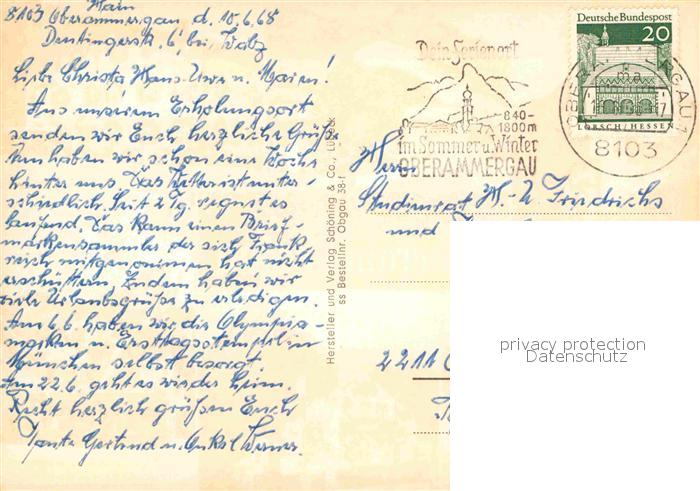 Main
8103 Oberammergau d. 10.6.68
6, bei
Liebe Christa Hans-Uwe u. Maren!
Aus unserem Erholungsort
senden wir Euch herzliche Grüße
Nun haben wir schon eine Woche
hinter uns Das Wetter ist unter-
schiedlich. Seit 2 Tg. regnet es
laufend. Das kann einen Brief-
markensammler der sich Frank
reich mitgenommen hat nicht
erschüttern. Zudem haben wir
viele Urlaubsgrüße zu erledigen.
Am 6.6. haben wir die Olympia-
marken u. Ersttagsstempel in
München selbst besorgt.
Am 22.6. geht es wieder heim.
Recht herzlich grüßen Euch
Tante Gertrud u. Onkel Werner.
Hersteller und Verlag Schöning & Co., Lübeck
ss Bestellnr. Obgau 38-f
Dein Ferienort
840-
1800m
im Sommer u. Winter
OBERAMMERGAU
Deutsche Bundespost
20
LORSCH/HESSEN
OBERAMMERGAU 1
ma
8103
Herrn
Studienrat H.-U. Friedrichs
und
2211
privacy protection
Datenschutz